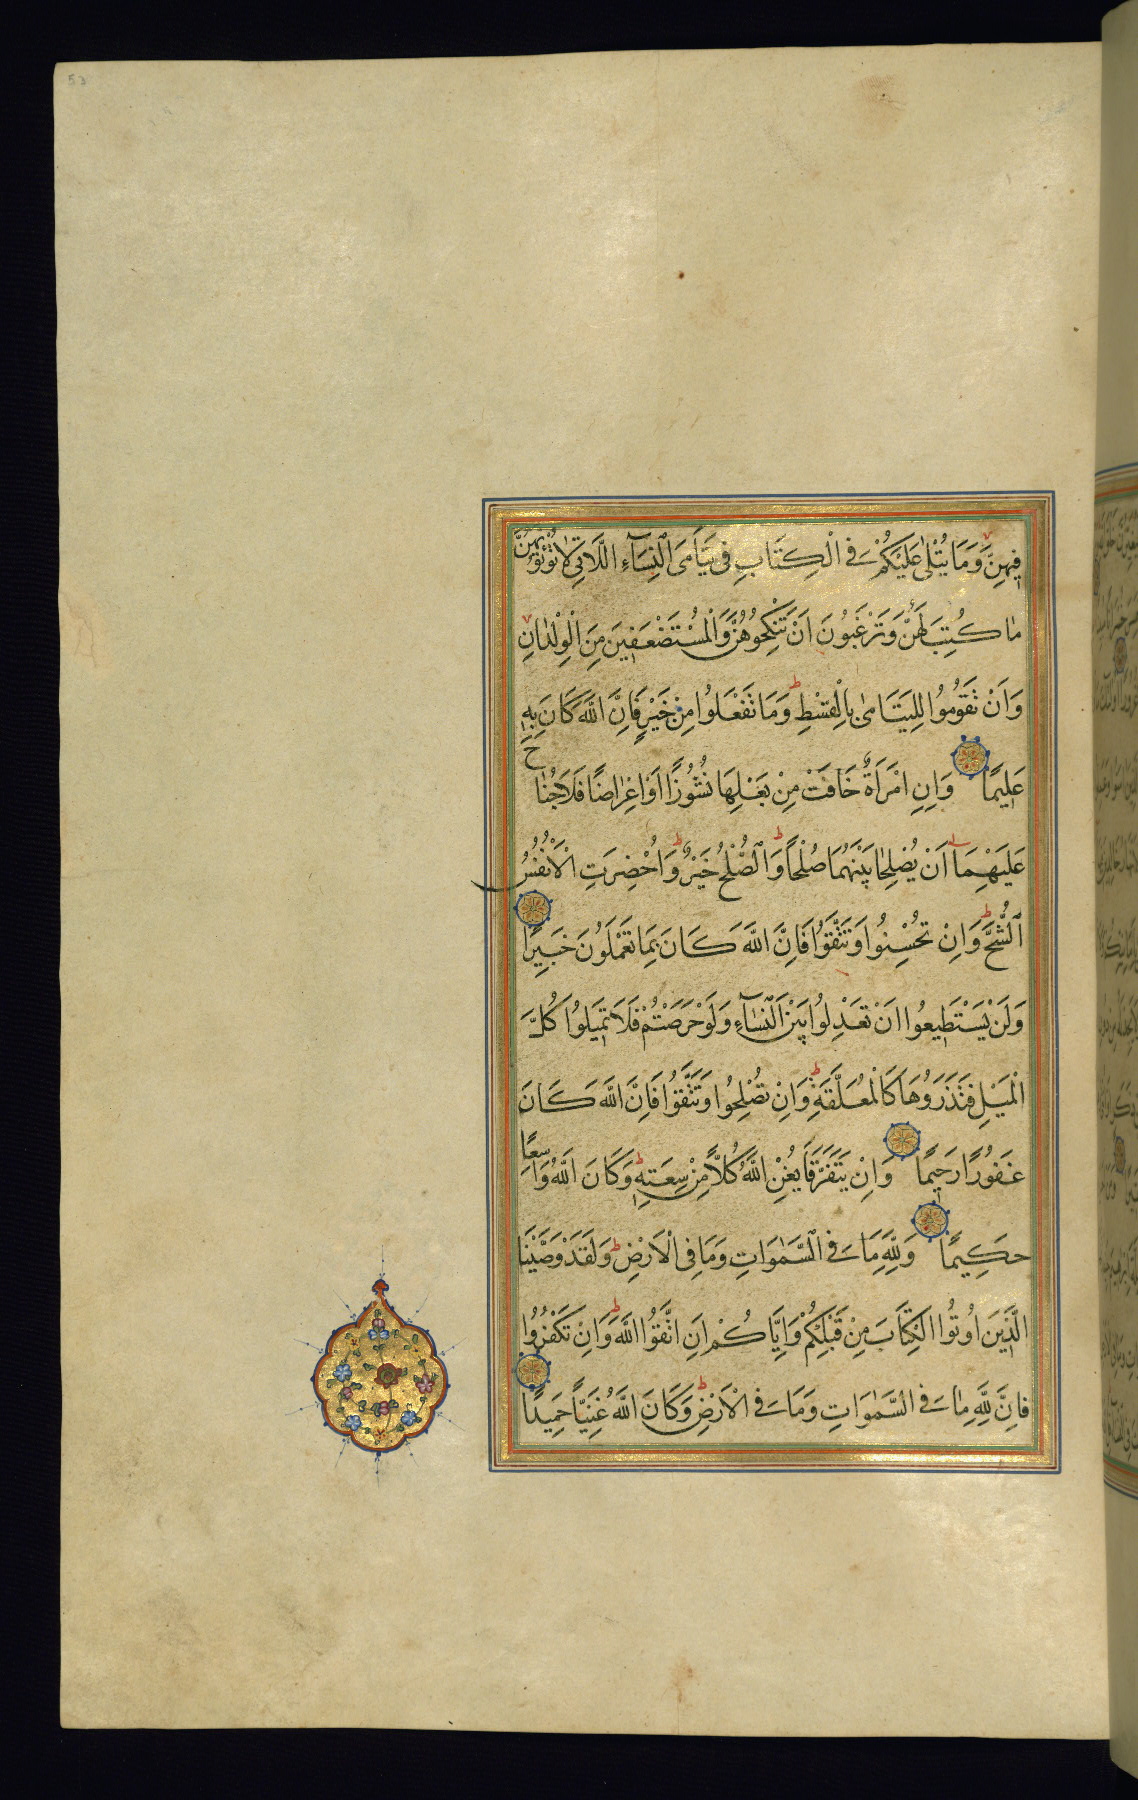 53
فِيهِنَّ وَمَا يُتْلٰى عَلَيْكُمْ فِي الْكِتَابِ فِي يَتَامَى النِّسَآءِ اللَّاتِي لَاتُؤْتُونَهُنَّ
مَا كُتِبَ لَهُنَّ وَتَرْغَبُونَ اَنْ تَنْكِحُوهُنَّ وَالْمُسْتَضْعَفِينَ مِنَ الْوِلْدَانِ
وَاَنْ تَقُومُوا لِلْيَتَامٰى بِالْقِسْطِ وَمَا تَفْعَلُوا مِنْ خَيْرٍ فَاِنَّ اللَّهَ كَانَ بِهِ
عَلِيمًا وَاِنِ امْرَاَةٌ خَافَتْ مِنْ بَعْلِهَا نُشُوزًا اَوْ اِعْرَاضًا فَلَا جُنَاحَ
عَلَيْهِمَا اَنْ يُصْلِحَا بَيْنَهُمَا صُلْحًا وَالصُّلْحُ خَيْرٌ وَاُحْضِرَتِ الْاَنْفُسُ
الشُّحَّ وَاِنْ تُحْسِنُوا وَتَتَّقُوا فَاِنَّ اللَّهَ كَانَ بِمَا تَعْمَلُونَ خَبِيرًا
وَلَنْ يَسْتَطِيعُوا اَنْ تَعْدِلُوا بَيْنَ النِّسَآءِ وَلَوْ حَرَصْتُمْ فَلَا تَمِيلُوا كُلَّ
الْمَيْلِ فَتَذَرُوهَا كَالْمُعَلَّقَةِ وَاِنْ تُصْلِحُوا وَتَتَّقُوا فَاِنَّ اللَّهَ كَانَ
غَفُورًا رَحِيمًا وَاِنْ يَتَفَرَّقَا يُغْنِ اللَّهُ كُلًّا مِنْ سِعَتِهِ وَكَانَ اللَّهُ وَاسِعًا
حَكِيمًا وَلِلَّهِ مَا فِي السَّمٰوَاتِ وَمَا فِي الْاَرْضِ وَلَقَدْ وَصَّيْنَا
الَّذِينَ اُوتُوا الْكِتَابَ مِنْ قَبْلِكُمْ وَاِيَّاكُمْ اَنِ اتَّقُوا اللَّهَ وَاِنْ تَكْفُرُوا
فَاِنَّ لِلَّهِ مَا فِي السَّمٰوَاتِ وَمَا فِي الْاَرْضِ وَكَانَ اللَّهُ غَنِيًّا حَمِيدًا